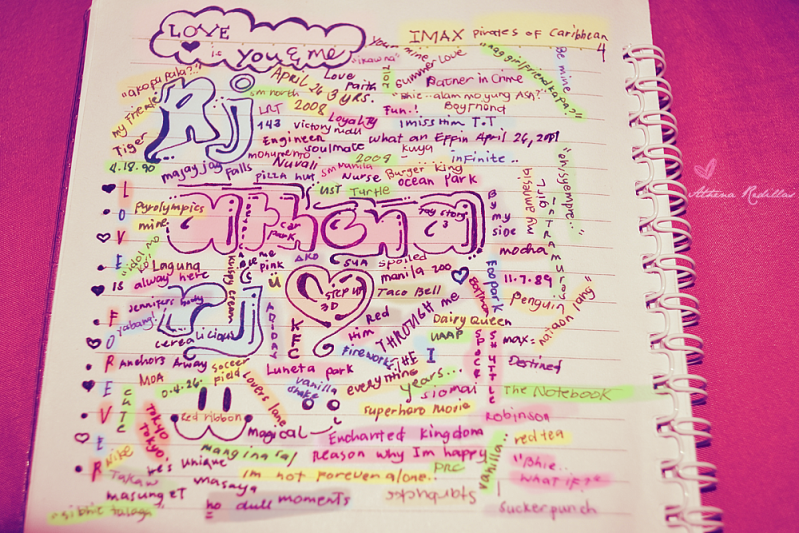 LOVE
is
you & me
IMAX Pirates of Caribbean
4
Your mine
Summer Love
Be mine
"ako pa pala?"
APRIL 26 3 YRS.
Love
Park
Partner in Crime
My Friend
RJ
SM north
2008
Loyalty
Fun..!
Boyfriend
Tiger
LRT
143
victory mall
I miss Him T.T
Engineer
soulmate
what an Eppin April 26, 2009
4.18.90
majayjay Falls
Nuvali
2009
Kuya
inFinite..
pizza hut
SM manila
Nurse
Burger King
ocean park
UST
Turtle
my amnesia
girl
INTRAMUROS
LOVE
IS
FOREVER
Pyrolympics
mine
athena
car
park
toy story
3
By my
side
mocha
"idol mo
ko"
Laguna
is alway here
Krispy Kreme
pink
AKO
SYA
spoiled
manila zoo
Eco park
11.7.89
Penguin
Taco Bell
Batman
"nataon lang"
Jennifers body
rj
STEP UP
3D
Red
Him
THROUGH ME
THE
Dairy Queen
cerealicious
KFC
Fireworks
UAAP
I
SPACE
SHUTTLE
max
Destined
Anchors Away
soccer
field
Luneta park
everytime
years...
MOA
0.4.26.
Lovers lane
vanilla
shake
siomai
The Notebook
Red Ribbon
superhero Movie
Robinson
Tokyo
Tokyo
magical
Enchanted Kingdom
red tea
Nike
mang inasal
reason why Im happy
vanilla
"Bhie..
WHAT IF??
Takaw
he's unique
im not forever alone..
PRC
masungit
masaya
Starbucks
"si bhie talaga"
no dull moments
Sucker punch
Athena Radillas